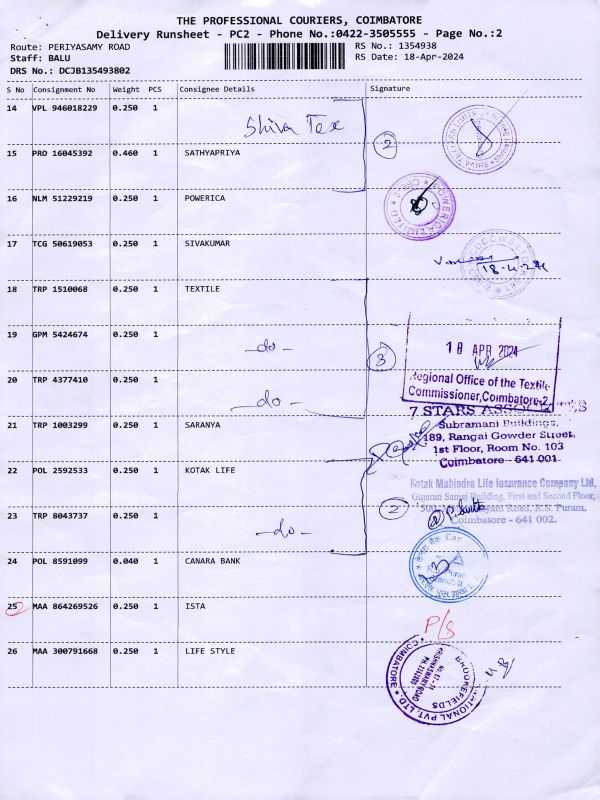 THE PROFESSIONAL COURIERS, COIMBATORE
Delivery Runsheet - PC2 - Phone No.:0422-3505555 - Page No.:2
Route: PERIYASAMY ROAD
RS No.: 1354938
Staff: BALU
RS Date: 18-Apr-2024
DRS No.: DCJB135493802
S No Consignment No Weight PCS Consignee Details Signature
14 VPL 946018229 0.250 1 Shiva Tex
15 PRO 16045392 0.460 1 SATHYAPRIYA
2
16 NLM 51229219 0.250 1 POWERICA
17 TCG 50619053 0.250 1 SIVAKUMAR
18.4.24
18 TRP 1510068 0.250 1 TEXTILE
19 GPM 5424674 0.250 1 -do-
3
18 APR 2024
20 TRP 4377410 0.250 1 -do-
Regional Office of the Textile
Commissioner, Coimbatore-2
7 STARS
21 TRP 1003299 0.250 1 SARANYA
Subramani Buildings,
189, Rangai Gowder Street,
1st Floor, Room No. 103
Coimbatore - 641 001.
22 POL 2592533 0.250 1 KOTAK LIFE
Kotak Mahindra Life Insurance Company Ltd,
Gujarati Samaj Building, First and Second Floor,
Road, R.S. Puram,
Coimbatore - 641 002.
2
23 TRP 8043737 0.250 1 -do-
24 POL 8591099 0.040 1 CANARA BANK
25 MAA 864269526 0.250 1 ISTA
P/S
26 MAA 300791668 0.250 1 LIFE STYLE
COIMBATORE
KRISHNASWAMY ROAD
BROOKEFIELDS